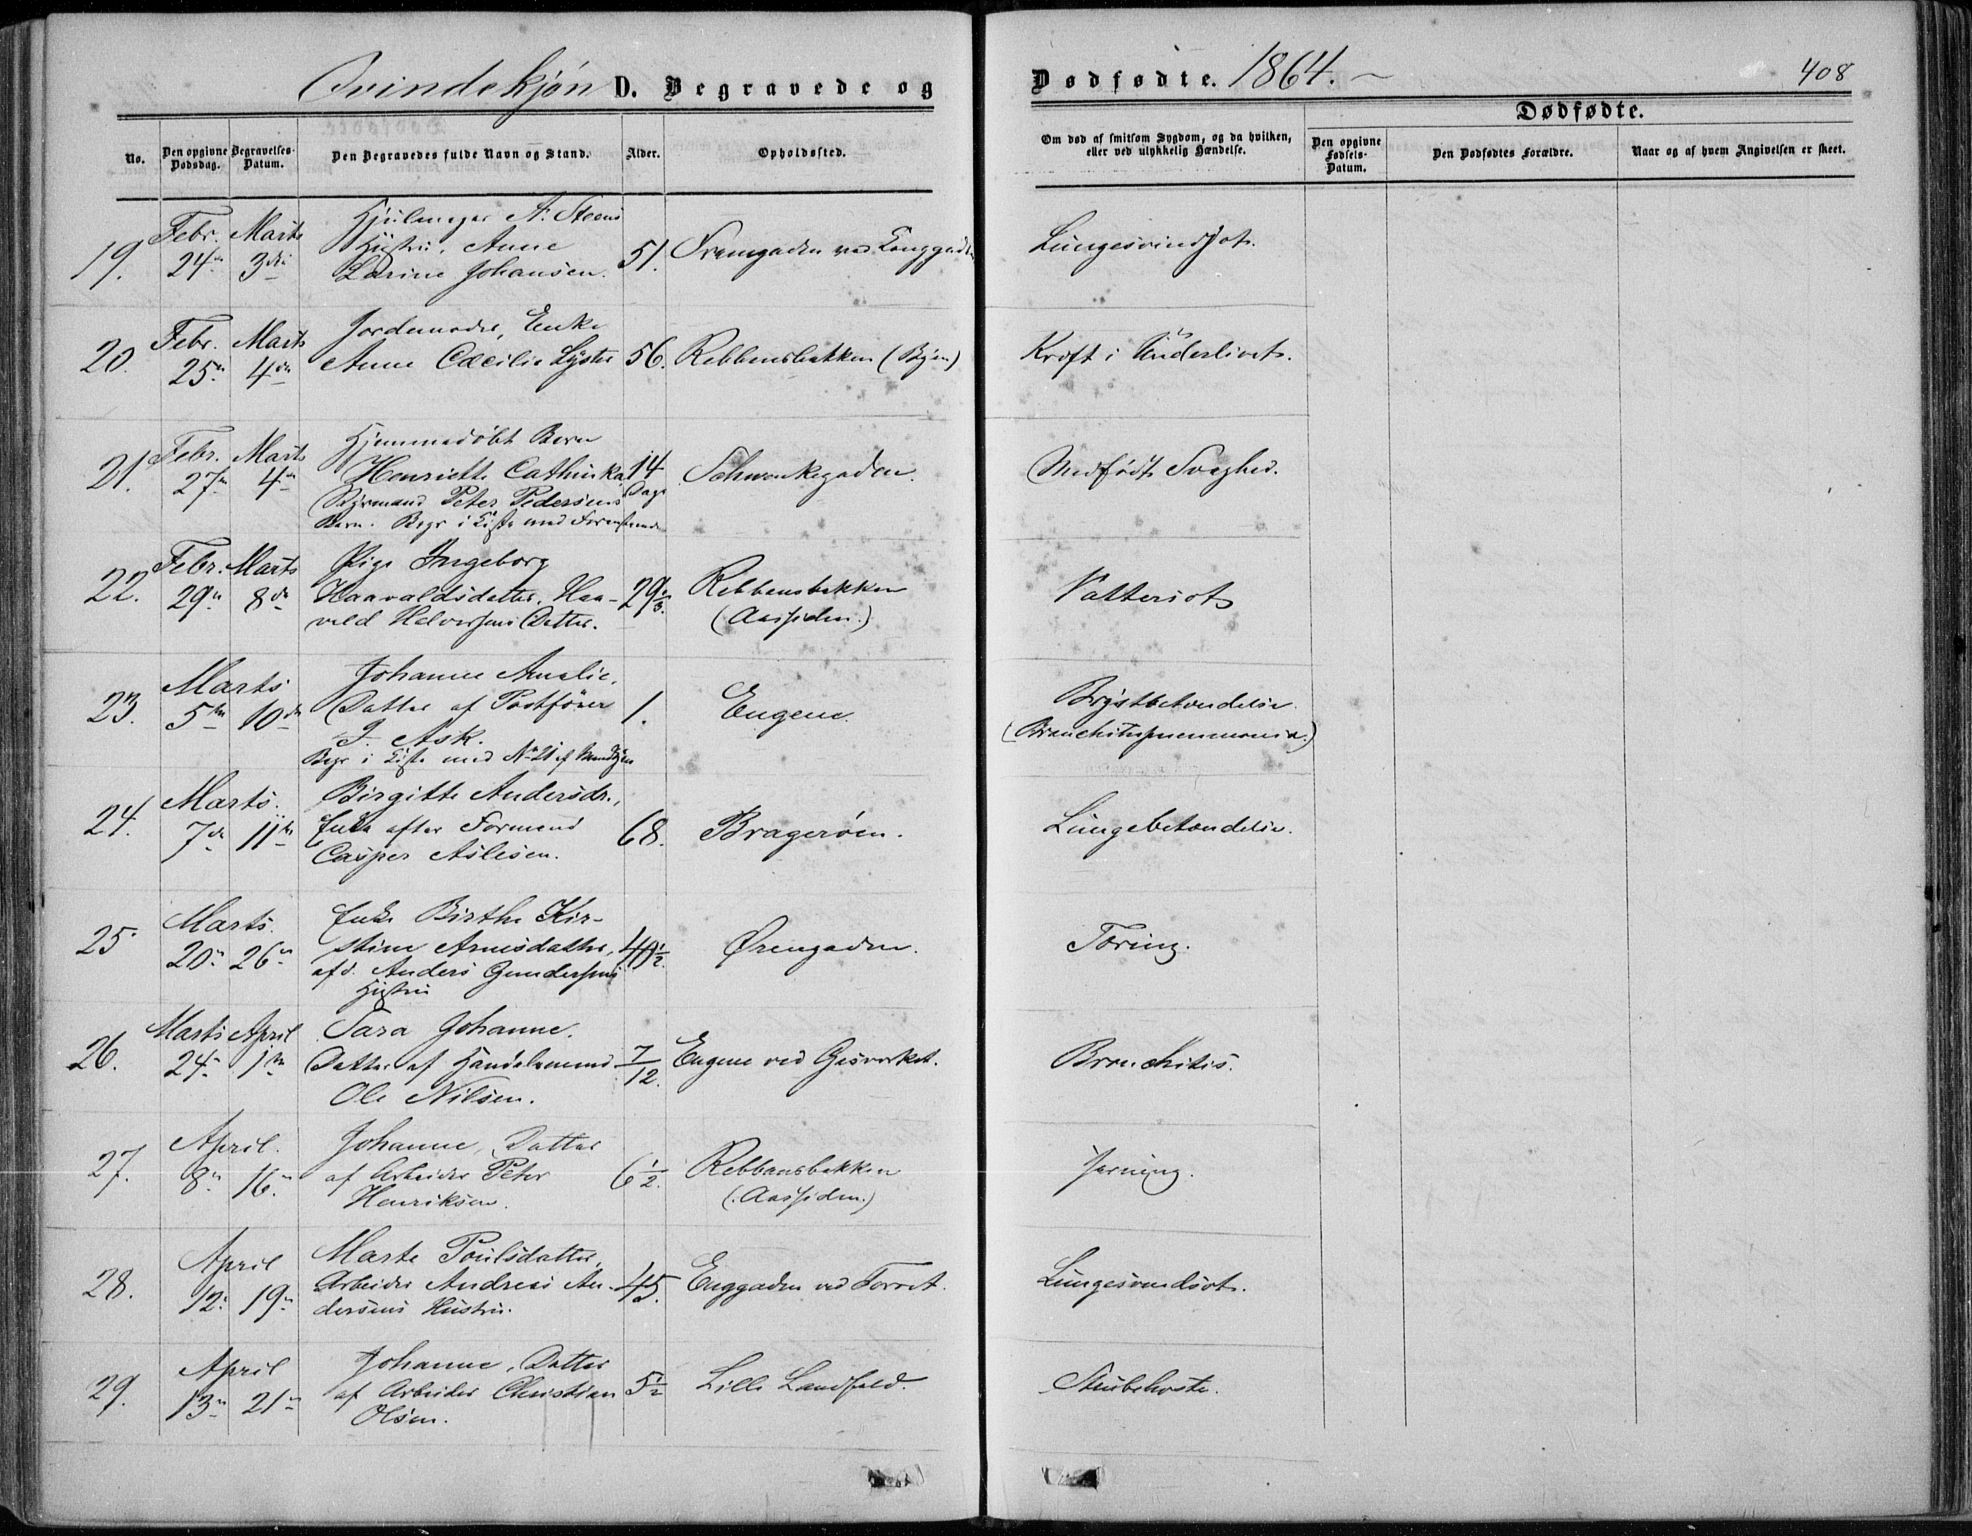 Qvindekjøn D. Begravede og Dødfødte. 1864.
408
No.
Den opgivne Dødsdag.
Begravelses-Datum.
Den Begravedes fulde Navn og Stand.
Alder.
Opholdssted.
Om død af smitsom Sygdom, og da hvilken,
eller ved ulykkelig Hændelse.
Dødfødte.
Den opgivne Fødsels-Datum.
Den Dødfødtes Forældre.
Naar og af hvem Angivelsen er skeet.
19. Febr. 24 Marts 3die
Hjulmager A. Steens
Hustru, Anne
Larine Johansen.
51.
Lungesvindsot.
20. Febr. 25 Marts 4de
Jordemoder, Enke
Anne Cæcilie Lyster
56. Rebbansbakken (Byen)
Kræft i Underlivet.
21. Febr. 27 Marts 4
Hjemmedøbt Barn
Henriette Cathinka
Styrmand Peter Pedersens
Barn. Begr i Kiste med
14 Dage
Schwenkegaden.
Medfødt Svaghed.
22. Febr. 29 Marts 8de
Pige Ingeborg
Haavaldsdatter, Haa-
vald Halvorsens Datter.
29
Rebbansbakken
(Aassiden.)
Vattersot
23. Marts 5te 10de
Johanne Amalie,
Datter af Postfører
J. Ask.
Begr i Kiste med No 21 af Mandkjøn
1.
Engene.
Brystbetændelse.
(Bronchitispneumonia.)
24. Marts. 7de 11te
Birgitte Andersdr.,
Enke efter Formand
Casper Aslesen.
68.
Bragerøen.
Lungebetændelse.
25 Marts. 20 26
Enke Birthe Kir-
stine Arnesdatter,
afd. Anders Gundersens
Hustru
40½.
Ørengaden.
Tæring.
26. Marts 24 April 1
Sara Johanne.
Datter af Handelsmand
Ole Nilsen.
7/12.
Engene ved Gasverket.
Bronchitis.
27. April. 8 16
Johanne, Datter
af Arbeider Peter
Henriksen.
6½.
Rebbansbakken
(Aassiden.)
28. April 12 19
Marte Poulsdatter,
Arbeider Andreas An-
dersens Hustru.
45.
Enggaden ved Torvet.
Lungesvindsot.
29. April 13 21
Johanne, Datter
af Arbeider Christian
Olsen.
5½
Lille Landfald.
Strubehoste.